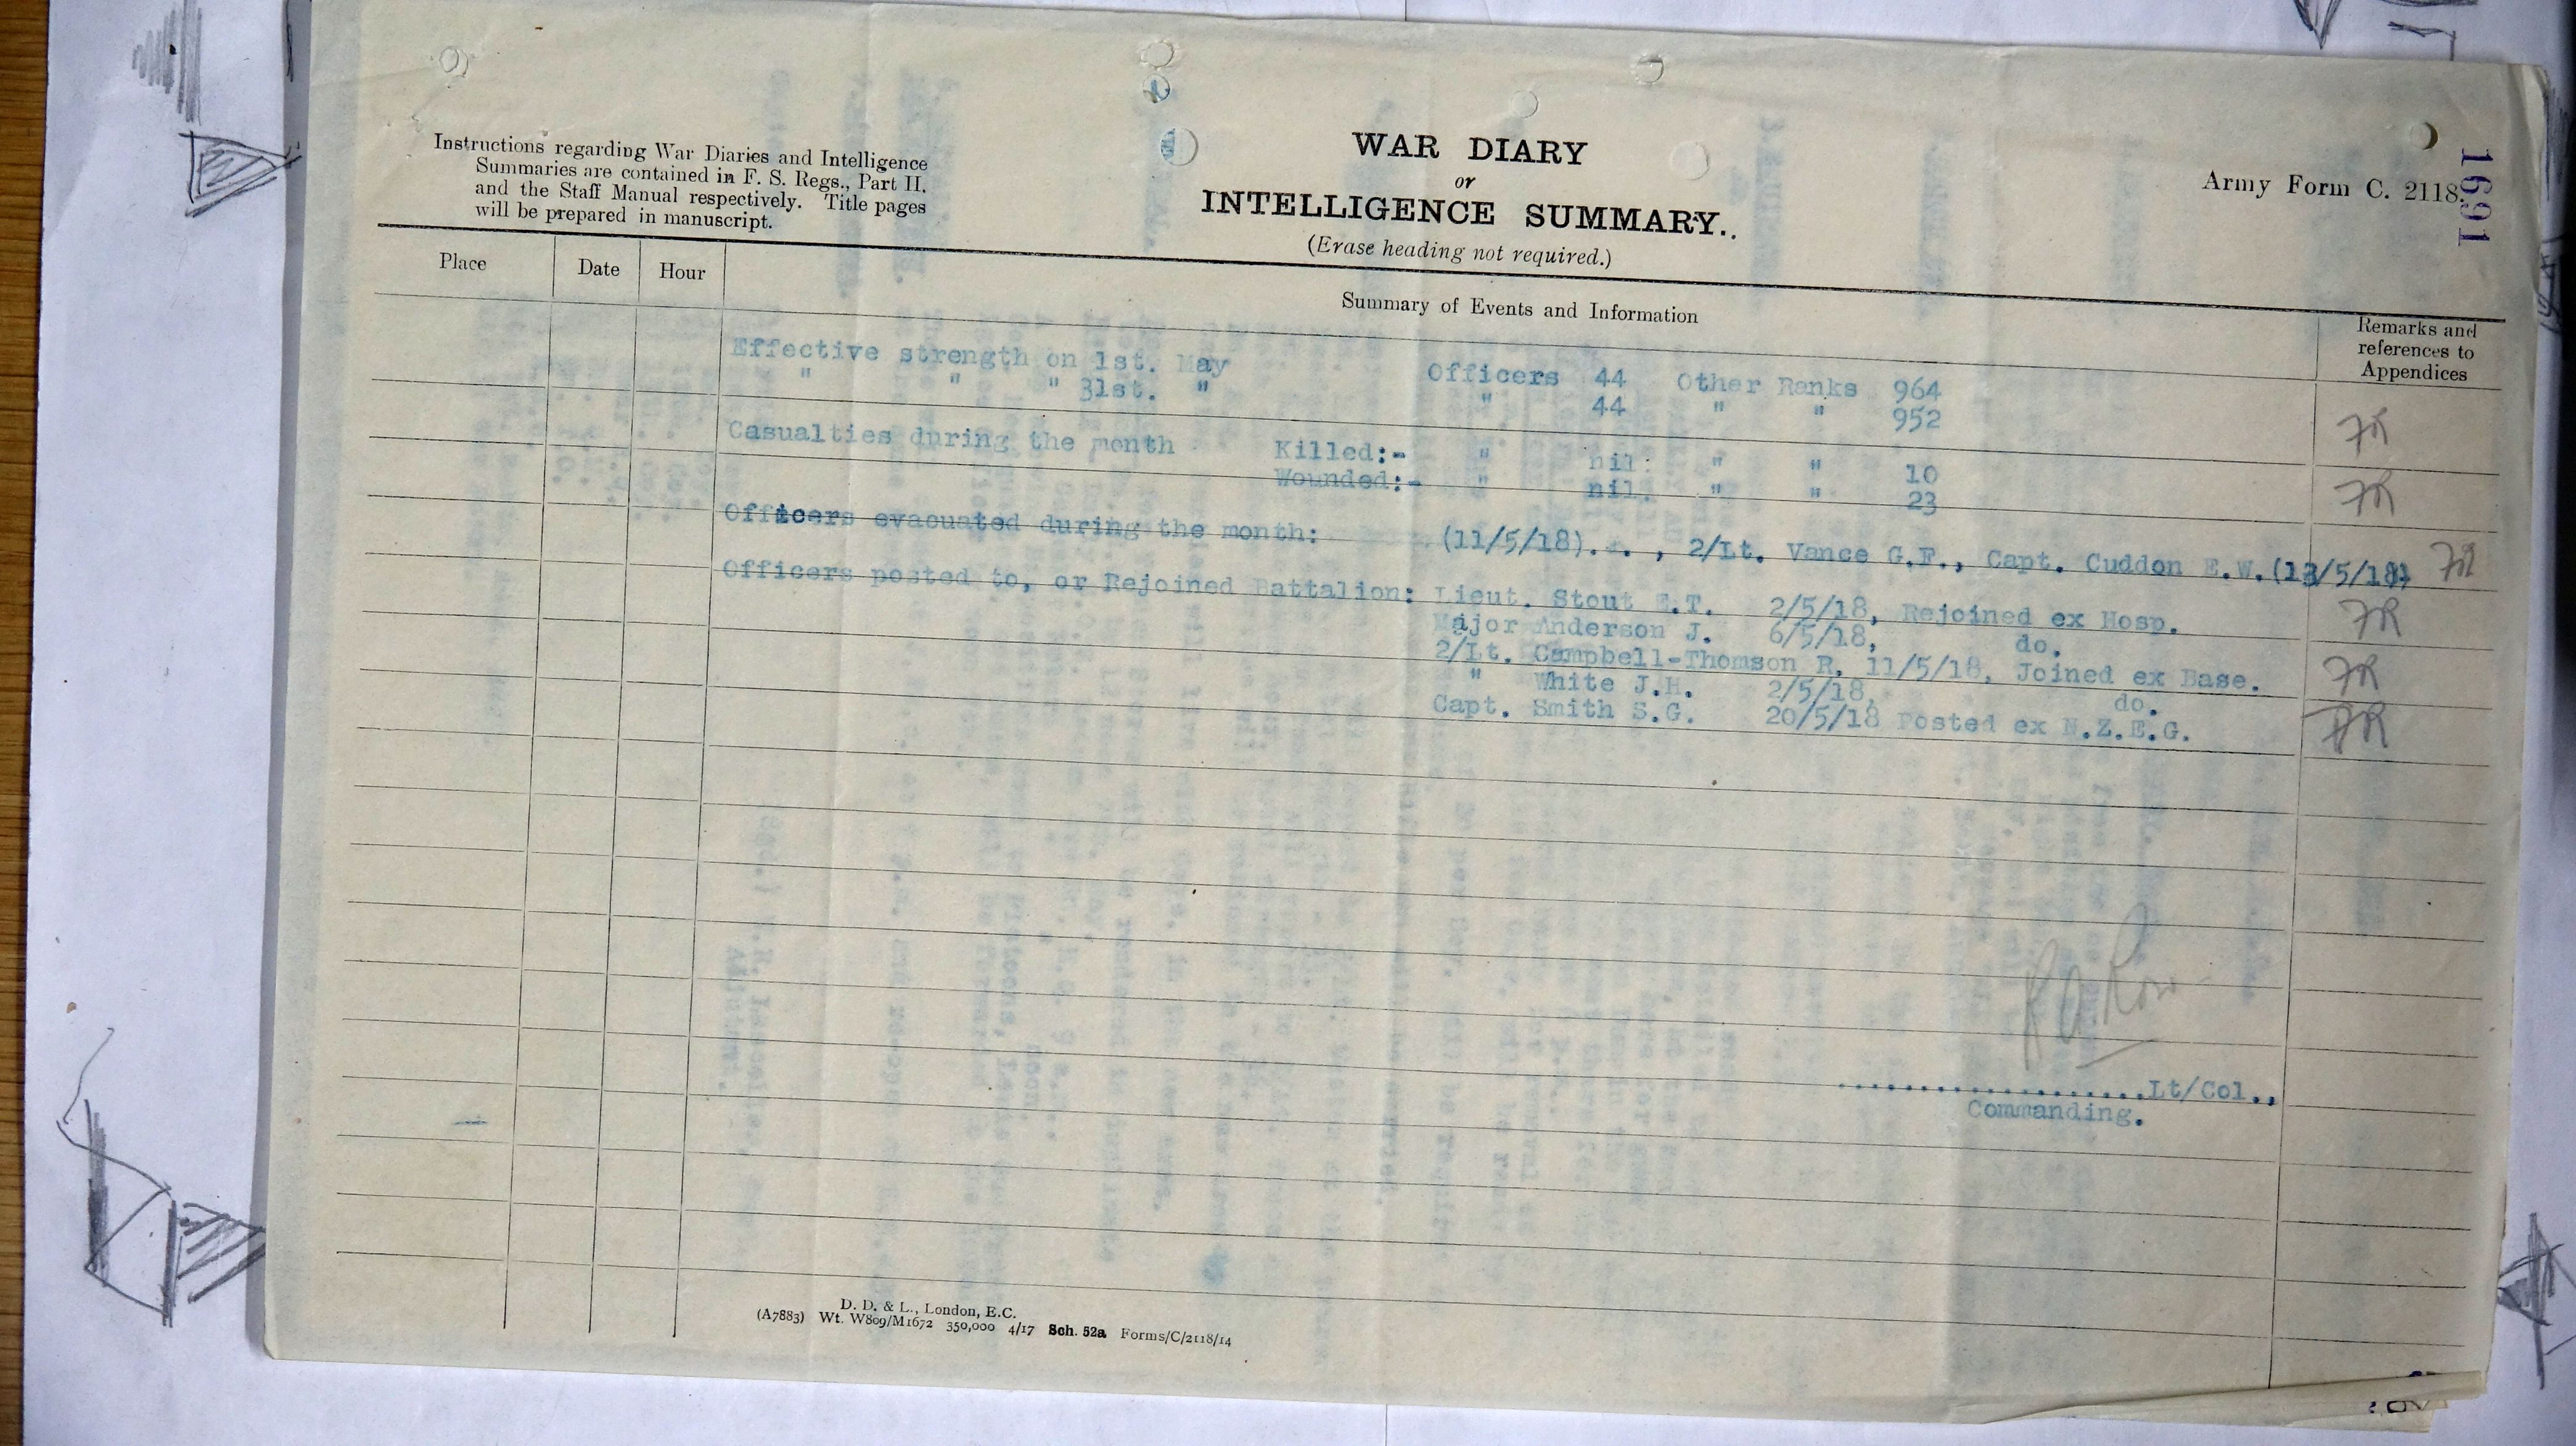 Instructions regarding War Diaries and Intelligence
Summaries are contained in F. S. Regs., Part II.
and the Staff Manual respectively. Title pages
will be prepared in manuscript.
WAR DIARY
or
INTELLIGENCE SUMMARY.
(Erase heading not required.)
Army Form C. 2118.
1691
Place Date Hour Summary of Events and Information Remarks and
references to
Appendices
Effective strength on 1st. May Officers 44 Other Ranks 964
" " " 31st. " " 44 " " 952
Casualties during the month Killed:- " nil. " " 10
Wounded:- " nil. " " 23
Officers evacuated during the month: (11/5/18). . , 2/Lt. Vance G.F., Capt. Cuddon E.W.
Officers posted to, or Rejoined Battalion: Lieut. Stout E.T. 2/5/18, Rejoined ex Hosp.
Major Anderson J. 6/5/18, do.
2/Lt. Campbell-Thomson R, 11/5/18, Joined ex Base.
" White J.H. 2/5/18, do.
Capt. Smith S.G. 20/5/18 Posted ex N.Z.E.G.
....................Lt/Col.,
Commanding.
D. D. & L., London, E.C.
(A7883) Wt. W809/M1672 350,000 4/17 Sch. 52a Forms/C/2118/14